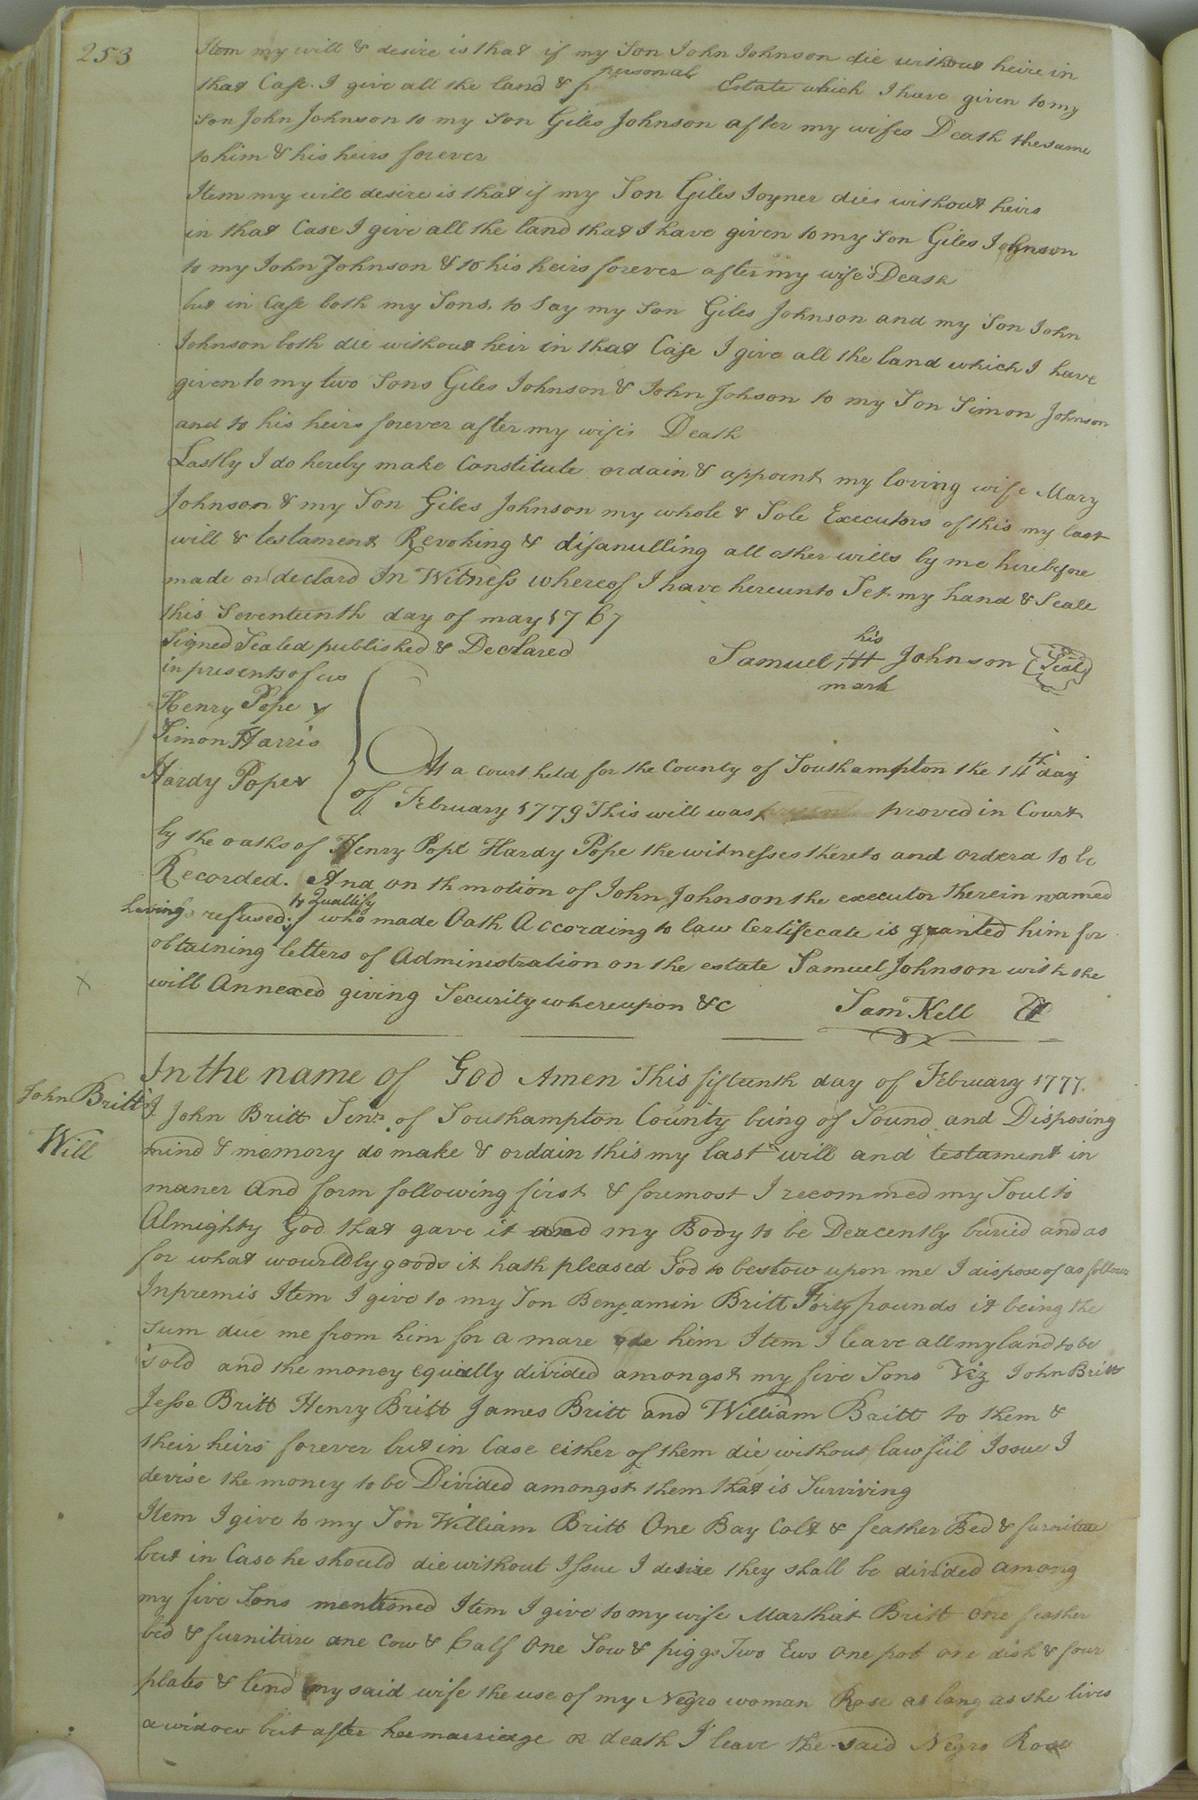 253
Item my will & desire is that if my Son John Johnson die without heire in
that Case. I give all the land & p personal Estate which I have given to my
Son John Johnson to my Son Giles Johnson after my wifes Death the same
to him & his heirs forever
Item my will desire is that if my Son Giles Joyner dies without heirs
in that Case I give all the land that I have given to my Son Giles Johnson
to my John Johnson & to his heirs forever after my wife's Death
but in Case both my Sons. to Say my Son Giles Johnson and my Son John
Johnson both die without heir in that Case I give all the land which I have
given to my two Sons Giles Johnson & John Johson to my Son Simon Johnson
and to his heirs forever after my wifes Death
Lastly I do hereby make Constitute ordain & appoint my loving wife Mary
Johnson & my Son Giles Johnson my whole & Sole Executors of this my last
will & testament Revoking & disanulling all other wills by me herebefore
made or declard In Witness whereof I have hereunto Set my hand & Seale
this Seventeenth day of may 1767
Signed Sealed published & Declared
in presents of us
his
Samuel Johnson Seal
mark
Henry Pope
Simon Harris
Hardy Pope
At a court held for the County of Southampton the 14th day
of February 1779 This will was proved in Court
by the oaths of Henry Pope Hardy Pope the witnesses thereto and orderd to be
Recorded. And on th motion of John Johnson the executor therein named
having refused to Quallify who made Oath According to law Certifecate is granted him for
obtaining letters of Administration on the estate Samuel Johnson with the
will Annexed giving Security whereupon &c Sam Kell
In the name of God Amen This fifteenth day of February 1777.
John Britts
Will
I John Britt Senr. of Southampton County being of Sound and Disposing
mind & memory do make & ordain this my last will and testament in
maner And form following first & foremost I recommed my Soul to
Almighty God that gave it and my Body to be Deacently buried and as
for what wourldly goods it hath pleased God to bestow upon me I dispose of as follows
Inpremis Item I give to my Son Benjamin Britt Forty pounds it being the
Sum due me from him for a mare him Item I leave all my land to be
sold and the money equally divided amongst my five Sons Viz John Britt
Jesse Britt Henry Britt James Britt and William Britt to them &
their heirs forever but in Case either of them die without lawfuil Issue I
devise the money to be Divided amongst them that is Surviving
Item I give to my Son William Britt One Bay Colt & feather Bed & furniture
but in Case he should die without Issue I desire they shall be divided among
my five Sons mentioned Item I give to my wife Marthat Britt one feather
bed & furniture one Cow & Calf One Sow & piggs Two Ews One pot one dish & four
plates & lend my said wife the use of my Negro woman Rose as long as she lives
a widow but after her marriage or death I leave the said Negro Rose